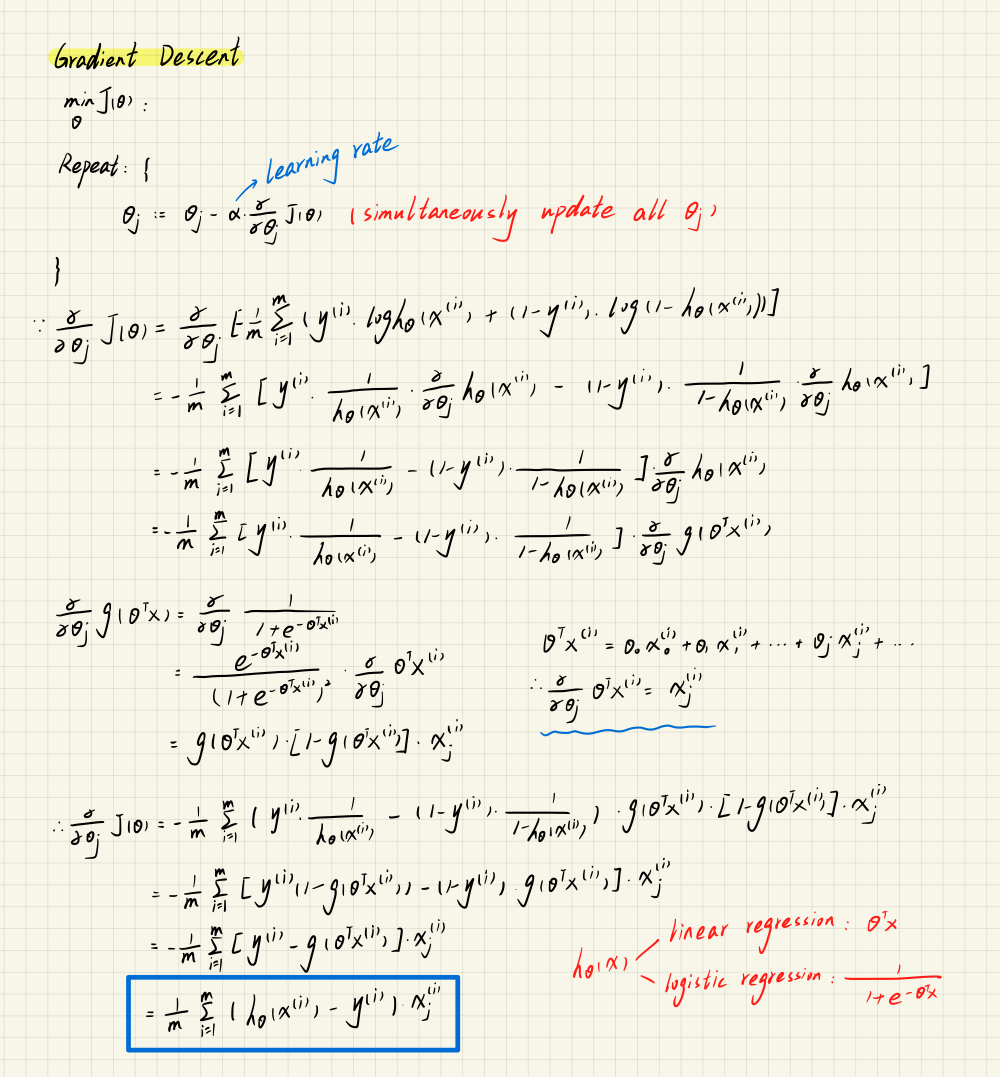 Gradient Descent
min J(θ) :
θ
Repeat: {
learning rate
θj := θj - α · ∂/∂θj J(θ) (simultaneously update all θj)
}
∵ ∂/∂θj J(θ) = ∂/∂θj [-1/m Σ_{i=1}^{m} (y^(i) · log hθ(x^(i)) + (1-y^(i)) · log(1-hθ(x^(i)))]
= -1/m Σ_{i=1}^{m} [y^(i) · 1/hθ(x^(i)) · ∂/∂θj hθ(x^(i)) - (1-y^(i)) · 1/(1-hθ(x^(i))) · ∂/∂θj hθ(x^(i))]
= -1/m Σ_{i=1}^{m} [y^(i) · 1/hθ(x^(i)) - (1-y^(i)) · 1/(1-hθ(x^(i)))] · ∂/∂θj hθ(x^(i))
= -1/m Σ_{i=1}^{m} [y^(i) · 1/hθ(x^(i)) - (1-y^(i)) · 1/(1-hθ(x^(i)))] · ∂/∂θj g(θ^T x^(i))
∂/∂θj g(θ^T x) = ∂/∂θj 1/(1+e^(-θ^T x^(i)))
= e^(-θ^T x^(i))/(1+e^(-θ^T x^(i)))² · ∂/∂θj θ^T x^(i)
= g(θ^T x^(i)) · [1-g(θ^T x^(i))] · xj^(i)
θ^T x^(i) = θ0 x0^(i) + θ1 x1^(i) + ··· + θj xj^(i) + ···
∴ ∂/∂θj θ^T x^(i) = xj^(i)
∴ ∂/∂θj J(θ) = -1/m Σ_{i=1}^{m} (y^(i) · 1/hθ(x^(i)) - (1-y^(i)) · 1/(1-hθ(x^(i)))) · g(θ^T x^(i)) · [1-g(θ^T x^(i))] · xj^(i)
= -1/m Σ_{i=1}^{m} [y^(i)(1-g(θ^T x^(i))) - (1-y^(i)) · g(θ^T x^(i))] · xj^(i)
= -1/m Σ_{i=1}^{m} [y^(i) - g(θ^T x^(i))] · xj^(i)
= 1/m Σ_{i=1}^{m} (hθ(x^(i)) - y^(i)) · xj^(i)
hθ(x)
linear regression : θ^T x
logistic regression : 1/(1+e^(-θ^T x))